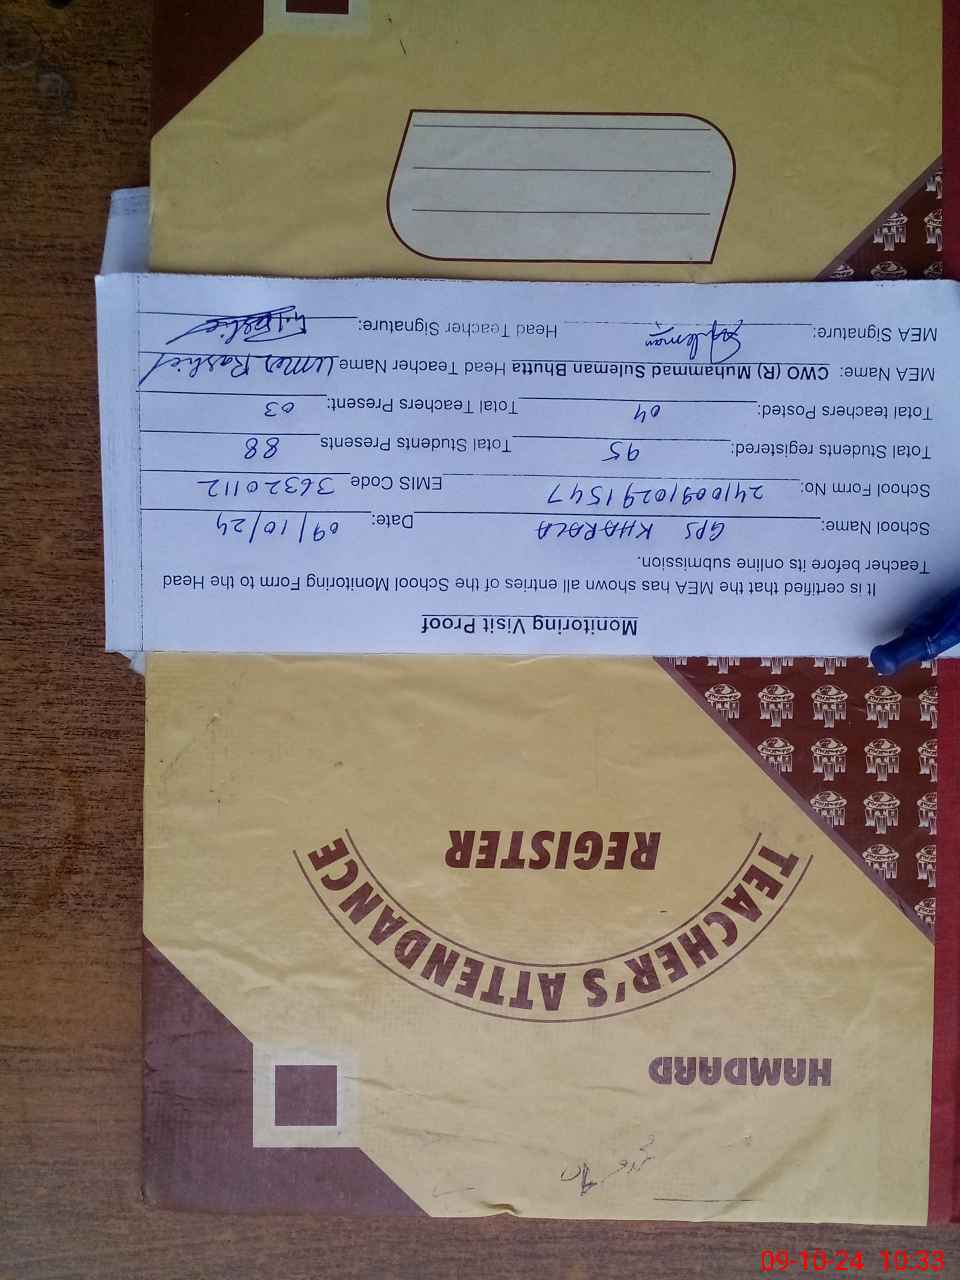 HAMDARD
TEACHER'S ATTENDANCE
REGISTER
Monitoring Visit Proof
It is certified that the MEA has shown all entries of the School Monitoring Form to the Head
Teacher before its online submission.
School Name: GPS KHARALA Date: 09/10/24
School Form No: 2410091029 1547 EMIS Code 36320112
Total Students registered: 95 Total Students Presents 88
Total teachers Posted: 04 Total Teachers Present: 03
MEA Name: CWO (R) Muhammad Suleman Bhutta Head Teacher Name Umer Rashid
MEA Signature: Suleman Head Teacher Signature:
09-10-24 10:33